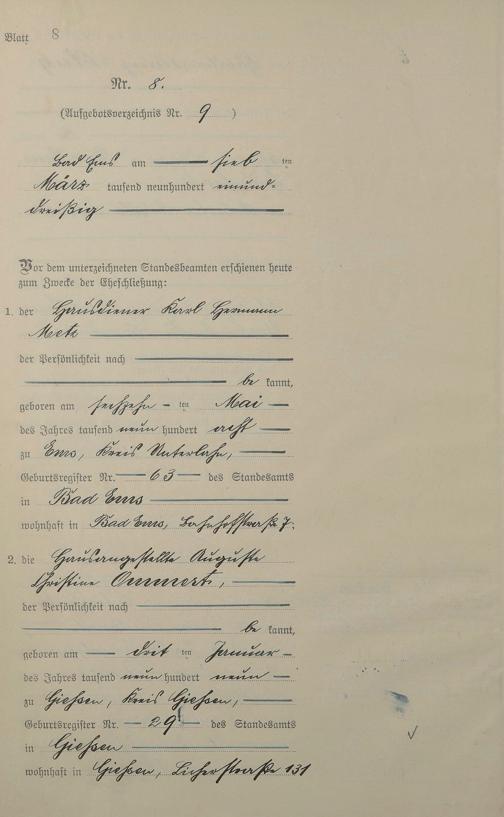 Blatt 8
Nr. 8.
(Aufgebotsverzeichnis Nr. 9 )
Bad Ems am sieb ten
März tausend neunhundert einund-
dreißig
Vor dem unterzeichneten Standesbeamten erschienen heute
zum Zwecke der Eheschließung:
1. der Hausdiener Karl Hermann
Metz
der Persönlichkeit nach
be kannt,
geboren am sechzehn ten Mai
des Jahres tausend neun hundert acht
zu Ems, Kreis Unterlahn,
Geburtsregister Nr. 63 des Standesamts
in Bad Ems
wohnhaft in Bad Ems, Bahnhofstraße 7.
2. die Hausangestellte Auguste
Christine Ommert,
der Persönlichkeit nach
be kannt,
geboren am drit ten Januar
des Jahres tausend neun hundert neun
zu Giessen, Kreis Giessen,
Geburtsregister Nr. 29 des Standesamts
in Giessen
wohnhaft in Giessen, Licherstraße 131